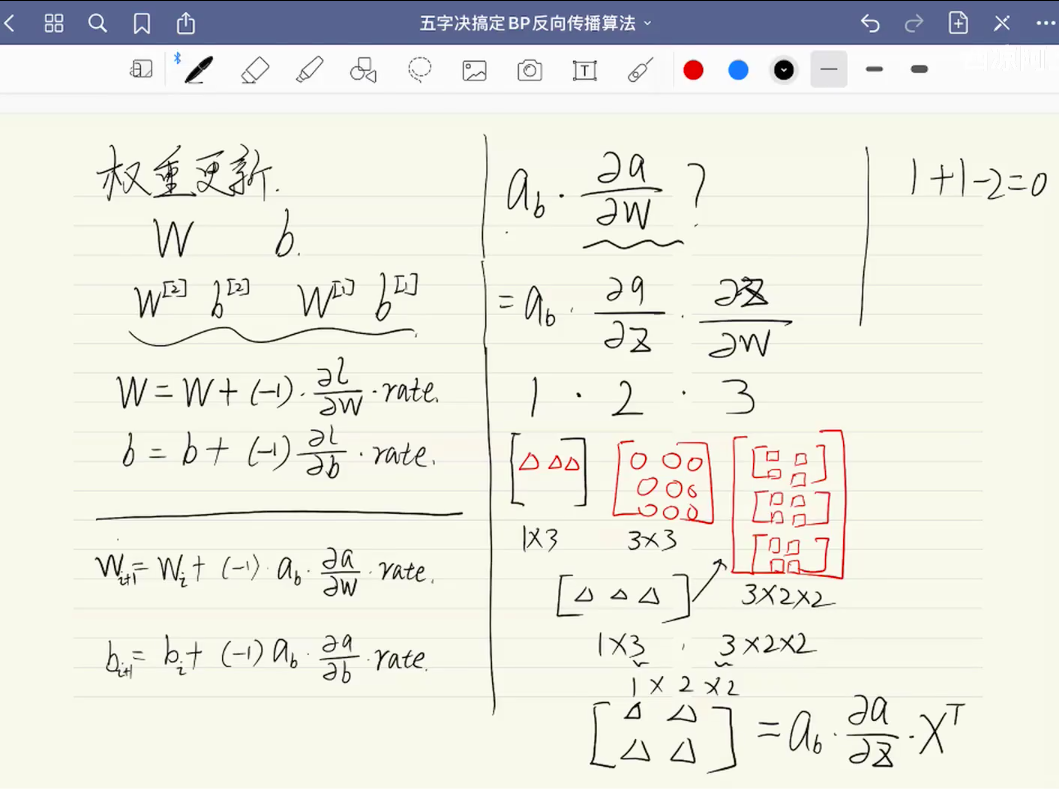 五字决搞定BP反向传播算法
权重更新.
W b.
W^[2] b^[2] W^[1] b^[1]
W = W + (-1) · ∂l/∂W · rate.
b = b + (-1) ∂l/∂b · rate.
W_{i+1} = W_i + (-1) · a_b · ∂a/∂W · rate.
b_{i+1} = b_i + (-1) a_b · ∂a/∂b · rate.
a_b · ∂a/∂W ?
= a_b · ∂a/∂z · ∂z/∂W
1 · 2 · 3
1×3 3×3
3×2×2
1×3 · 3×2×2
1×2×2
= a_b · ∂a/∂z · X^T
1+1-2=0